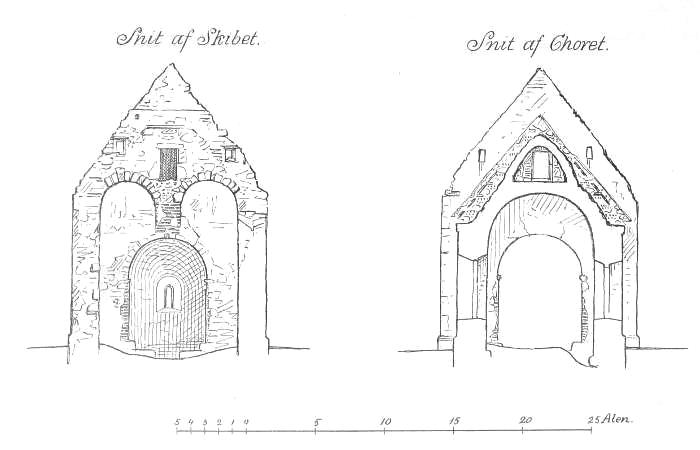 Snit af Skibet.
Snit af Choret.
5 4 3 2 1 0 5 10 15 20 25 Alen.